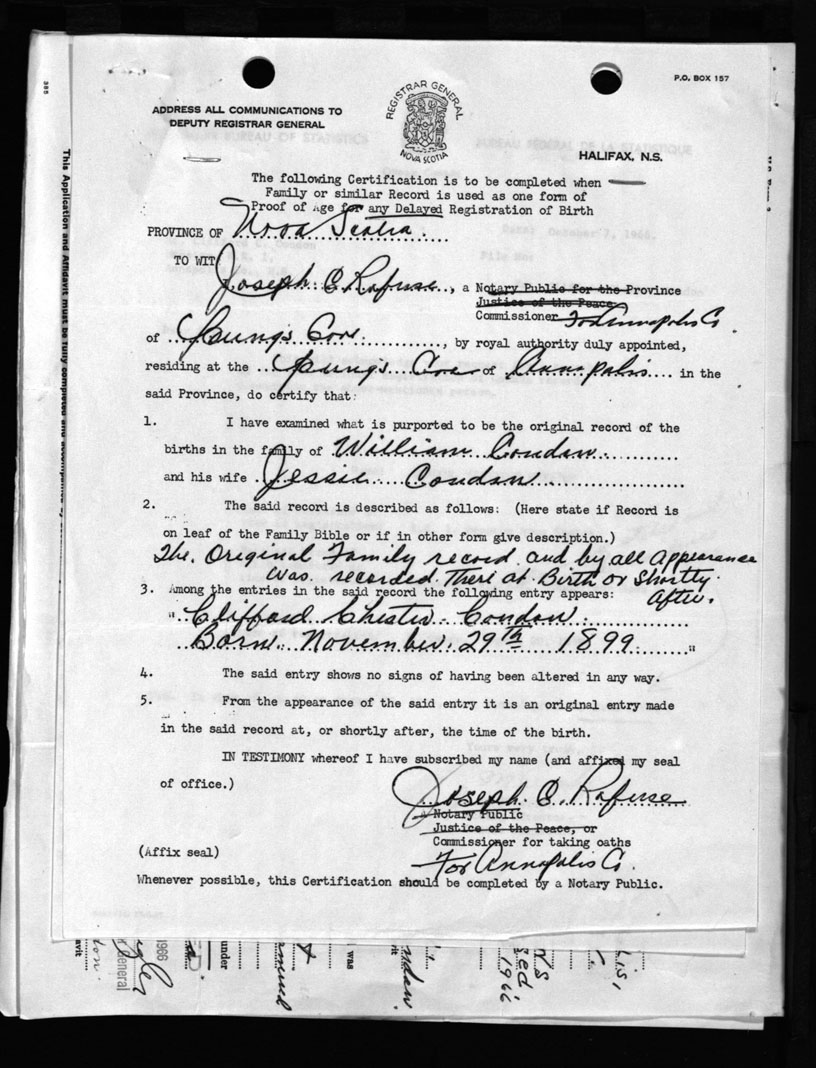 P.O. BOX 157
ADDRESS ALL COMMUNICATIONS TO
DEPUTY REGISTRAR GENERAL
REGISTRAR GENERAL
NOVA SCOTIA
HALIFAX, N.S.
The following Certification is to be completed when
Family or similar Record is used as one form of
Proof of Age for any Delayed Registration of Birth
PROVINCE OF Nova Scotia
TO WIT
Joseph O Rafuse, a Notary Public for the Province
Justice of the Peace
Commissioner For Annapolis Co.
of Youngs Cove, by royal authority duly appointed,
residing at the Youngs Cove of Annapolis in the
said Province, do certify that:
1. I have examined what is purported to be the original record of the
births in the family of William Condon
and his wife Jessie Condon
2. The said record is described as follows: (Here state if Record is
on leaf of the Family Bible or if in other form give description.)
The Original Family record and by all Appearance
was recorded There at Birth or Shortly
After.
3. Among the entries in the said record the following entry appears:
" Clifford Chester Condon
Born November 29th 1899 "
4. The said entry shows no signs of having been altered in any way.
5. From the appearance of the said entry it is an original entry made
in the said record at, or shortly after, the time of the birth.
IN TESTIMONY whereof I have subscribed my name (and affixed my seal
of office.)
Joseph O. Rafuse
A Notary Public
Justice of the Peace, or
Commissioner for taking oaths
For Annapolis Co.
(Affix seal)
Whenever possible, this Certification should be completed by a Notary Public.
385
This Application and Affidavit must be fully completed and
BUREAU FEDERAL DE LA STATISTIQUE
October 7, 1966.
1966
General
under
was
1966